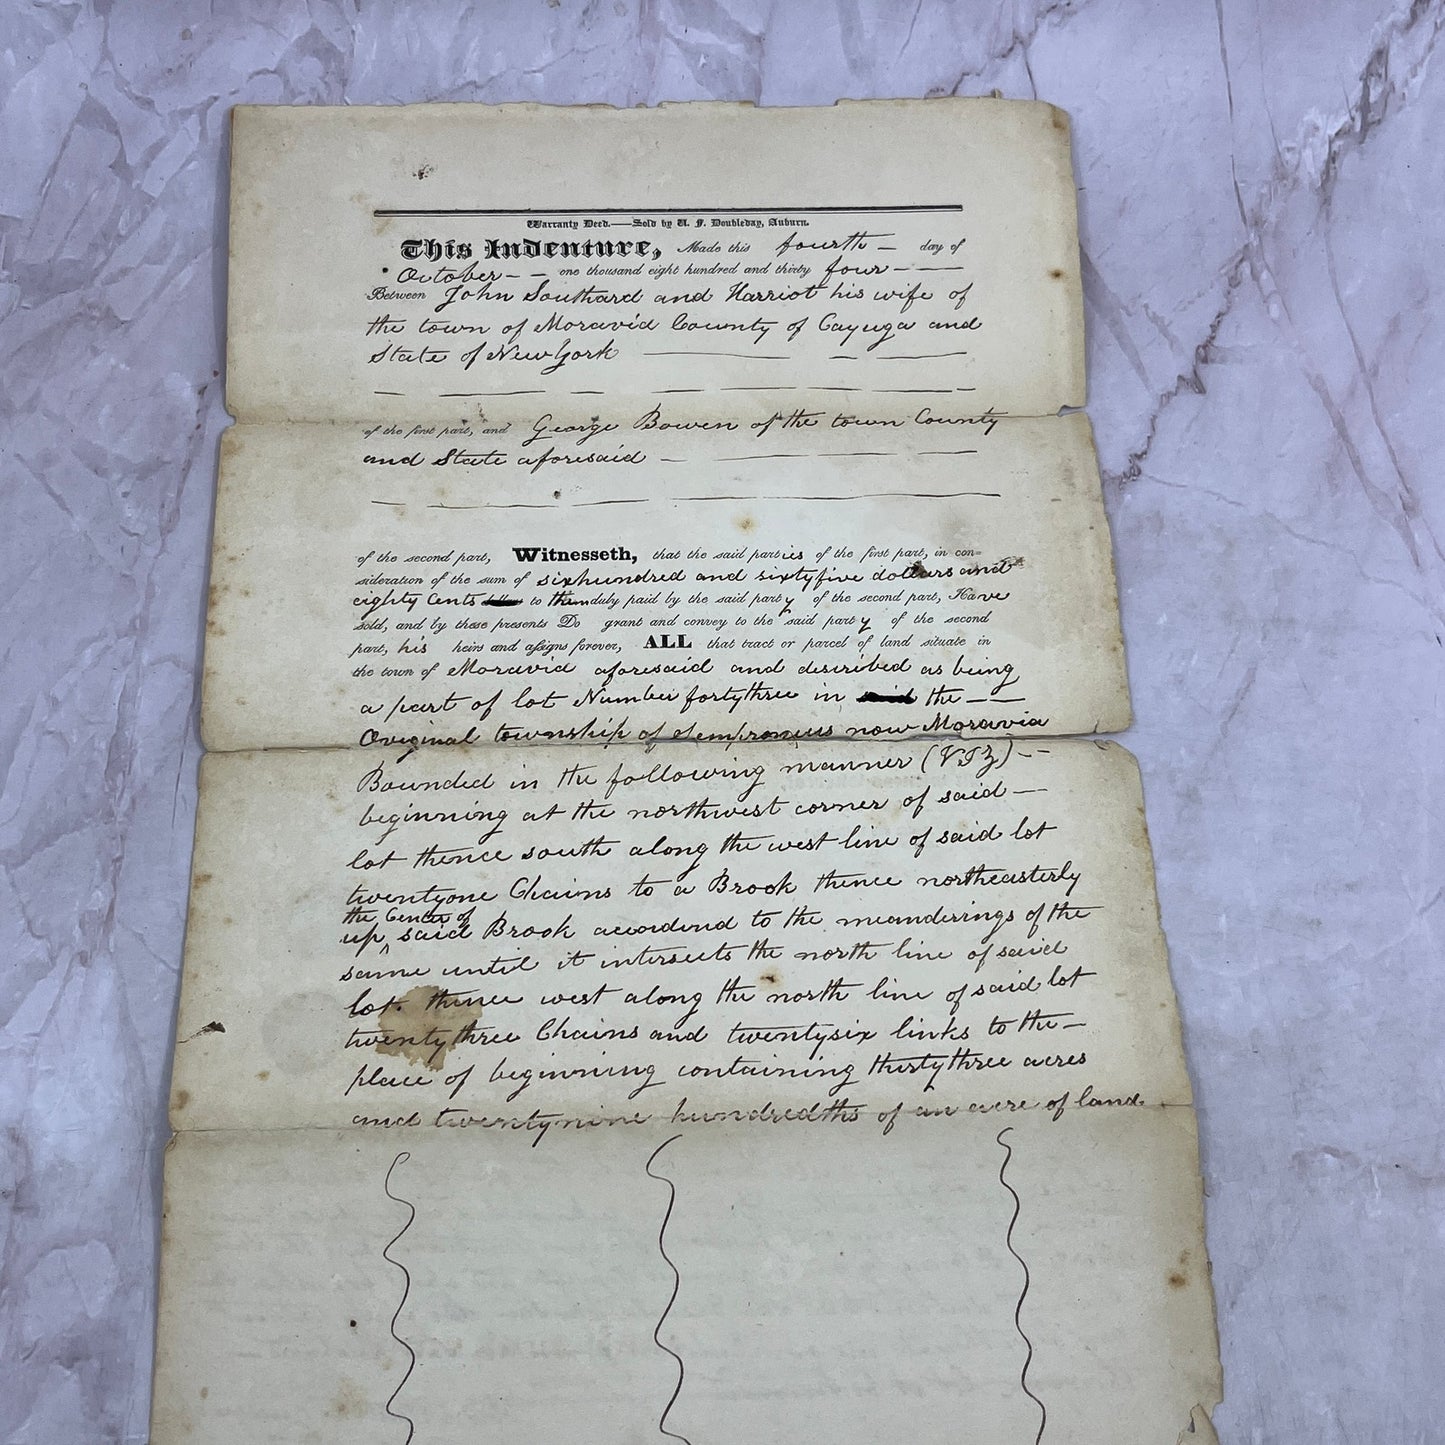 Warranty Deed.—Sold by U. F. Doubleday, Auburn.
This Indenture, Made this fourth — day of
October — — one thousand eight hundred and thirty four — —
Between John Southard and Harriot his wife of
the town of Moravia County of Cayuga and
State of New York
of the first part, and George Bowen of the town County
and State aforesaid —
of the second part, Witnesseth, that the said parties of the first part, in con=
sideration of the sum of sixhundred and sixtyfive dollars and
eighty Cents to them duly paid by the said party of the second part, Have
sold, and by these presents Do grant and convey to the said party of the second
part, his heirs and assigns forever, ALL that tract or parcel of land situate in
the town of Moravia aforesaid and described as being
a part of lot Number fortythree in said the — —
Original township of Sempronius now Moravia
Bounded in the following manner (VIZ) — —
beginning at the northwest corner of said —
lot thence south along the west line of said lot
twentyone Chains to a Brook thence northeasterly
the Center of
up ^ said Brook accordind to the meanderings of the
same until it intersects the north line of said
lot. thence west along the north line of said lot
twentythree Chains and twentysix links to the —
place of beginning containing thirtythree acres
and twentynine hundredths of an acre of land.